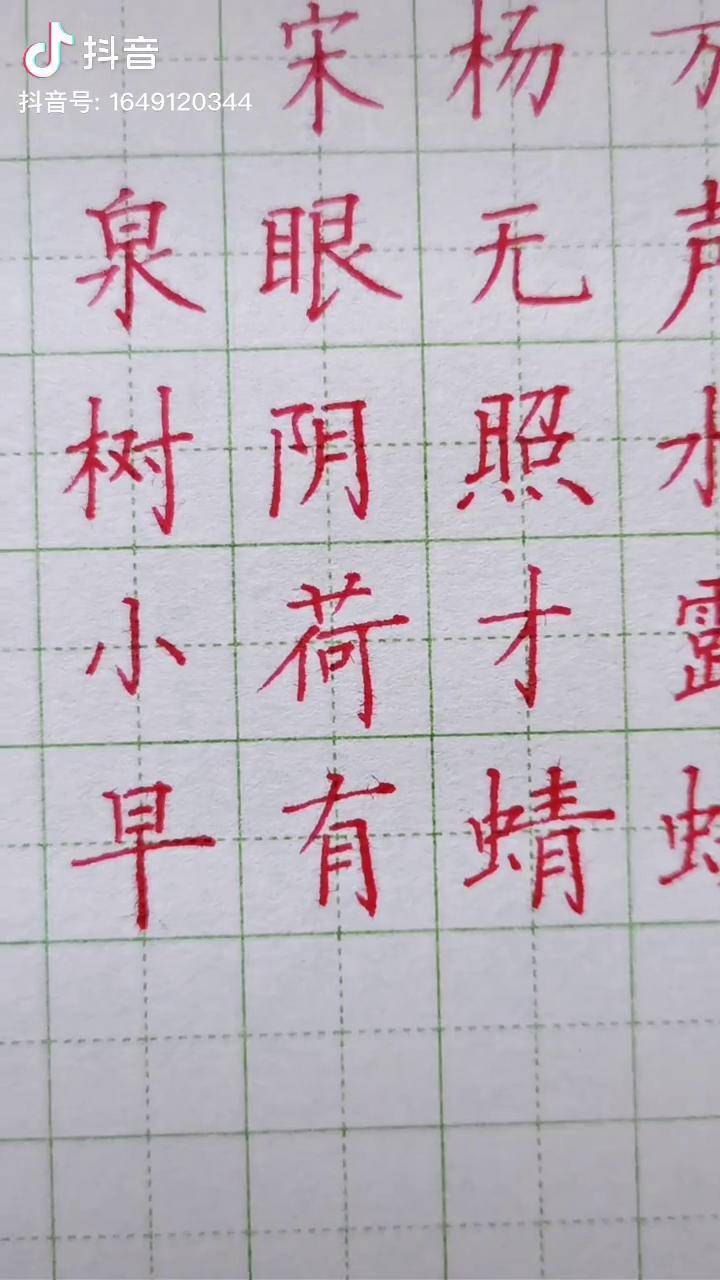 抖音
抖音号: 1649120344
宋杨
泉眼无
树阴照
小荷才
早有蜻